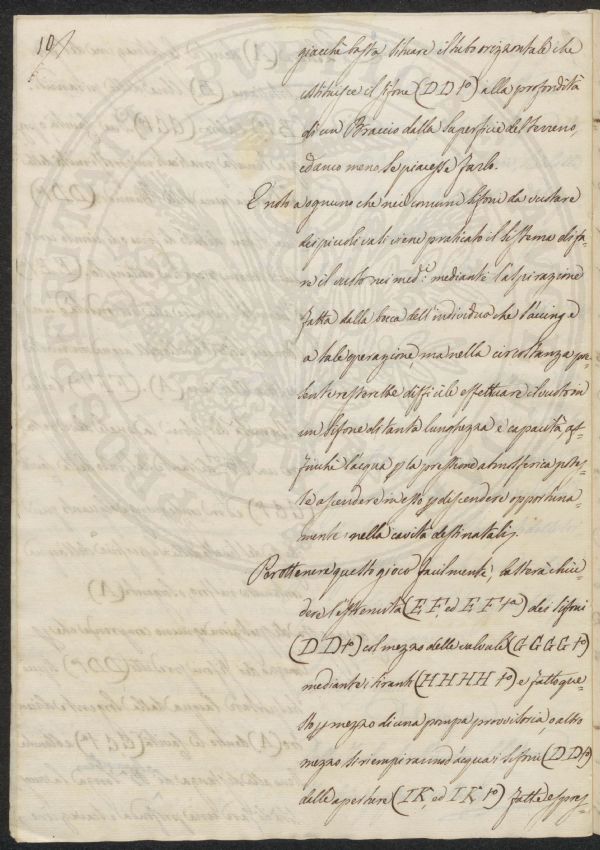 10
giacchè basta situare il tubo orizzontale che
costituisce il sifone (DD tº) alla profondità
di un Braccio dalla superficie del terreno,
ed anco meno se piacesse farlo.
È noto a ognuno che nei comuni sifoni da vuotare
dei piccoli vasi viene praticato il sistema di fa
re il vuoto nei med.i mediante l'aspirazione
fatta dalla bocca dell'individuo che s'accinge
a tale operazione, ma nella circostanza pre
sente resterebbe difficile effettuare il vuoto in
un sifone di tanta lunghezza e capacità, af=
finchè l'acqua p la pressione atmosferica potes=
se ascendere in esso p discendere opportuna=
mente nella cavità destinatali.
Per ottenere questo gioco facilmente, basterà chiu=
dere l'estremità (EF, ed EF tª) dei sifoni
(DD tº) col mezzo delle valvole (GGGG tº)
mediante i tiranti (HHHH tº) e fatto que=
sto p mezzo di una pompa provvisoria, o altro
mezzo si riempiranno d'acqua i sifoni (DD tº)
dalle aperture (IK, ed IK tº) fatte espres=